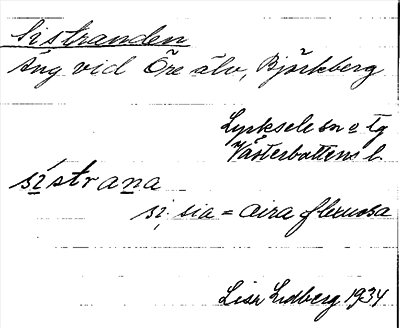 Sistranden
Äng vid Öre älv, Björkberg
Lycksele sn o tg
Västerbottens l.
sístrana
si, sia = aira flexuosa
Lisa Lidberg 1934